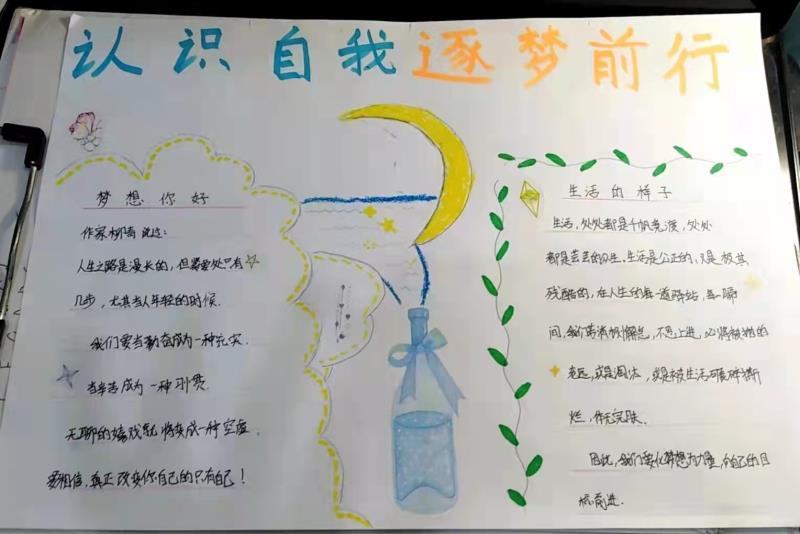 认识自我逐梦前行
梦想你好
作家柳青说过:
人生之路是漫长的,但紧要处只有
几步,尤其当人年轻的时候.
我们要当勤奋成为一种充实.
当辛苦成为一种习惯.
无聊的嬉戏就将变成一种空虚.
要相信,真正改变你自己的只有自己!
生活的样子
生活,处处都是千帆竞渡,处处
都是芸芸众生.生活是公正的,又是极其
残酷的,在人生的每一道阵站,每一瞬
间,我们若消极懈怠,不思上进,必将被抛的
老远,或是淘汰,或是被生活可 碎撕
烂,体无完肤.
因此,我们要化梦想为力量,向自己的目
标前进.